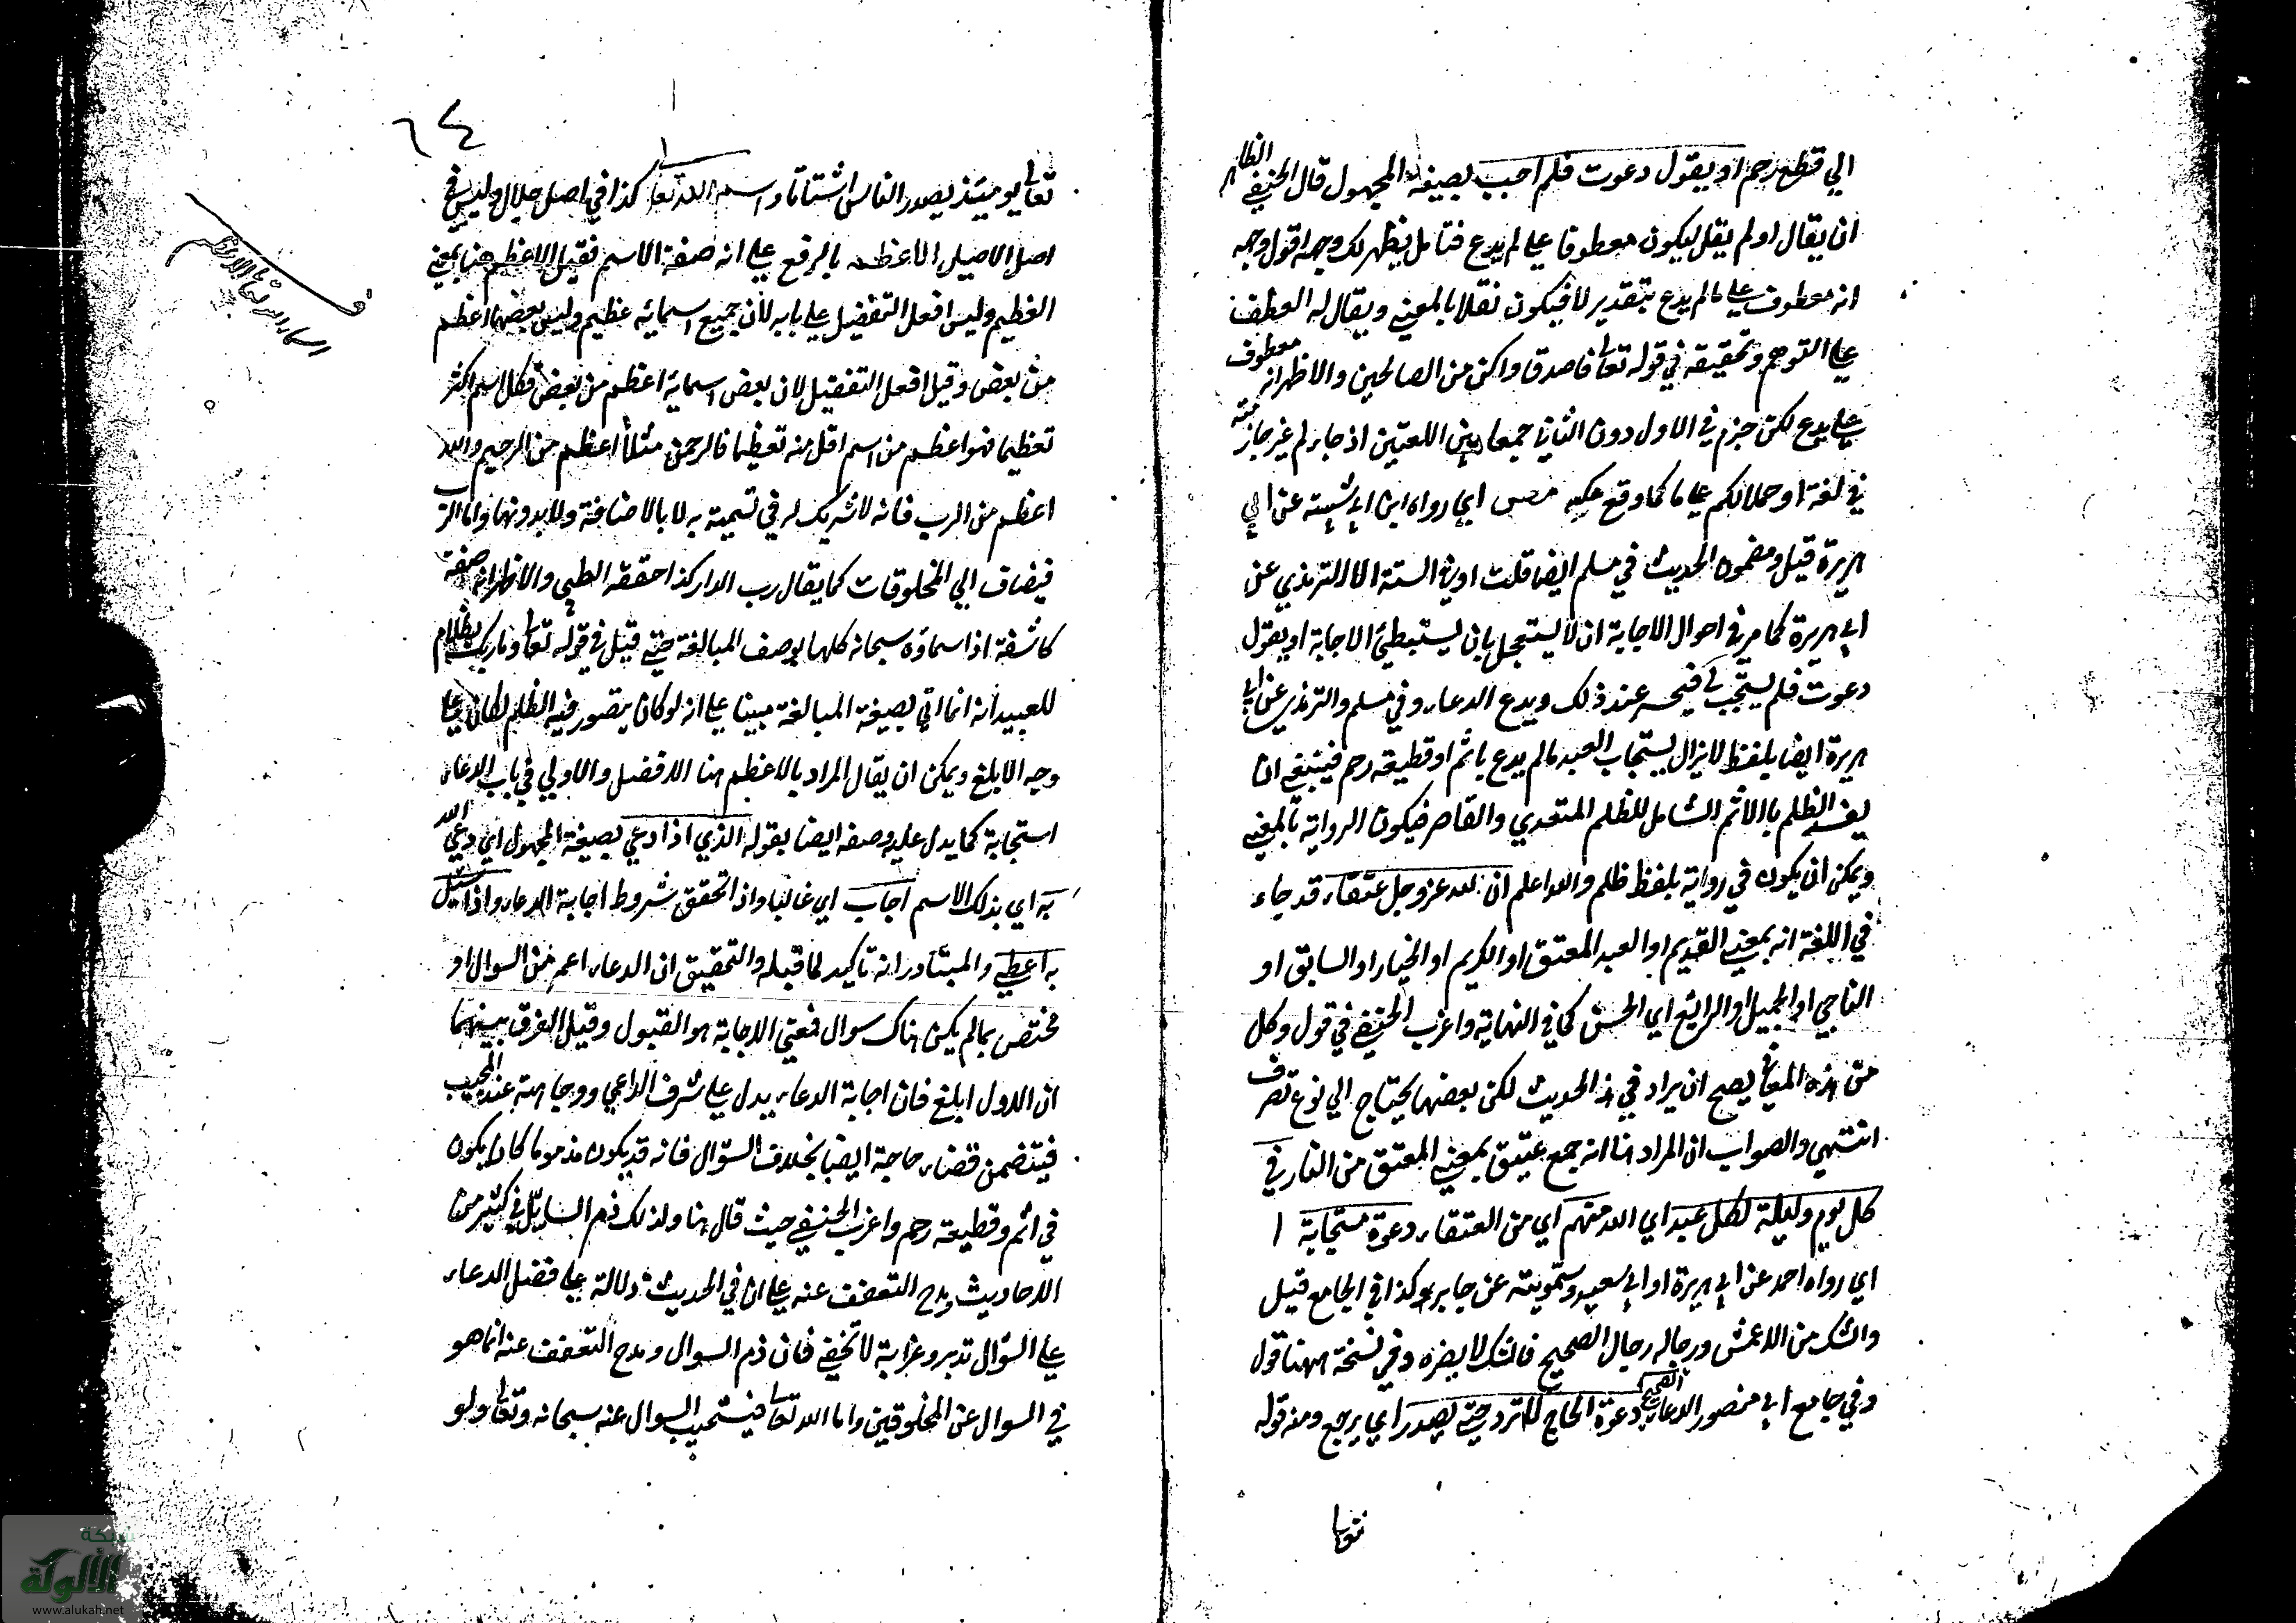 الي قطع رحم او يقول دعوت فلم اجب بصيغة المجهول قال الحنفي الظاهر
ان يقال او لم يقل ليكون معطوفا علي لم يدع فتامل يظهر لك وجهه اقول وجهه
انه معطوف علي مالم يدع بتقدير لا فيكون نقلا بالمعني ويقال له العطف
علي التوهم وتحقيقه في قوله تعالي فاصدق واكن من الصالحين والاظهر انه معطوف
علي يدع لكن جزم في الاول دون الثاني جمعا بين اللغتين اذ جاء لم غير جازمة
في لغة او حملا لكم علي ما كما وقع عكسه مص اي رواه ابن ابي شيبة عن ابي
هريرة قيل ومضمون الحديث في مسلم ايضا قلت اورده الستة الا الترمذي عن
ابي هريرة كما مر في احوال الاجابة ان لا يستعجل بان يستبطئ الاجابة او يقول
دعوت فلم يستجب لي فيتحسر عند ذلك ويدع الدعاء وفي مسلم والترمذي عن ابي
هريرة ايضا بلفظ لا يزال يستجاب العبد مالم يدع باثم او قطيعة رحم فينبغي ان
يفسر الظلم بالاثم الشامل للظلم المتعدي والقاصر فيكون الرواية بالمعني
ويمكن ان يكون في رواية بلفظ ظلم والله اعلم ان لله عز وجل عتقاء قد جاء
في اللغة انه بمعني القديم او العبد المعتق او الكريم او الخيار او السابق او
الناجي او الجميل او الرائع اي الحسن كما في النهاية واغرب الحنفي في قوله وكل
من هذه المعاني يصح ان يراد في هذا الحديث لكن بعضها يحتاج الي نوع تصرف
انتهي والصواب ان المراد هنا انه جمع عتيق بمعني المعتق من النار في
كل يوم وليلة لكل عبد اي الله منهم اي من العتقاء دعوة مستجابة ا
اي رواه احمد عن ابي هريرة او ابي سعيد وسمويه عن جابر كذا في الجامع قيل
والشك من الاعمش ورجاله رجال الصحيح فالشك لا يضره وفي نسخة ههنا قول
وفي جامع ابي منصور الدعاء الصحيح دعوة الحاج لا ترد حتي يصدر اي يرجع ومنه قوله
٦٤
تعالي يومئذ يصدر الناس اشتاتا واسم الله تعالي كذا في اصل جلال وليس في
اصل الاصيل الاعظم بالرفع علي انه صفة الاسم فقيل الاعظم هنا بمعني
العظيم وليس افعل التفضيل علي بابه لان جميع اسمائه عظيم وليس بعضها اعظم
من بعض وقيل افعل التفضيل لان بعض اسمايه اعظم من بعض فكل اسم اكثر
تعظيما فهو اعظم من اسم اقل منه تعظيما فالرحمن مثلا اعظم من الرحيم والله
اعظم من الرب فانه لا شريك له في تسميته به لا بالاضافة ولا بدونها واما الرب
فيضاف الي المخلوقات كما يقال رب الدار كذا حققه الطيبي والاظهر انه صفة
كاشفة اذ اسماؤه سبحانه كلها بوصف المبالغة حتي قيل في قوله تعالي وما ربك بظلام
للعبيد انه انما اتي بصيغة المبالغة مبينا علي انه لو كان يتصور فيه الظلم لكان علي
وجه الابلغ ويمكن ان يقال المراد بالاعظم هنا الافضل والاولي في باب الدعاء
استجابة كما يدل عليه وصفه ايضا بقوله الذي اذا دعي بصيغة المجهول اي دعي الله
به اي بذلك الاسم اجاب اي غالبا واذا تحقق شروط اجابة الدعاء واذا سئل
به اعطي والمتبادر انه تاكيد لما قبله والتحقيق ان الدعاء اعم من السوال او
مختص بمالم يكن هناك سوال فمعني الاجابة هو القبول وقيل الفرق بينهما
ان الاول ابلغ فان اجابة الدعاء يدل علي شرف الداعي ووجاهته عند المجيب
فيتضمن قضاء حاجة ايضا بخلاف السؤال فانه قد يكون مذموما كان يكون
في اثم وقطيعة رحم واغرب الحنفي حيث قال هنا ولذلك ذم السايل في كثير من
الاحاديث ومدح التعفف عنه علي ان في الحديث دلالة علي فضل الدعاء
علي السؤال تدبر وغرابته لا تخفي فان ذم السوال ومدح التعفف عنه انما هو
في السوال عن المخلوقين واما الله تعالي فيستحب السوال عنه سبحانه وتعالي ولو
شبكة
الألوكة
www.alukah.net